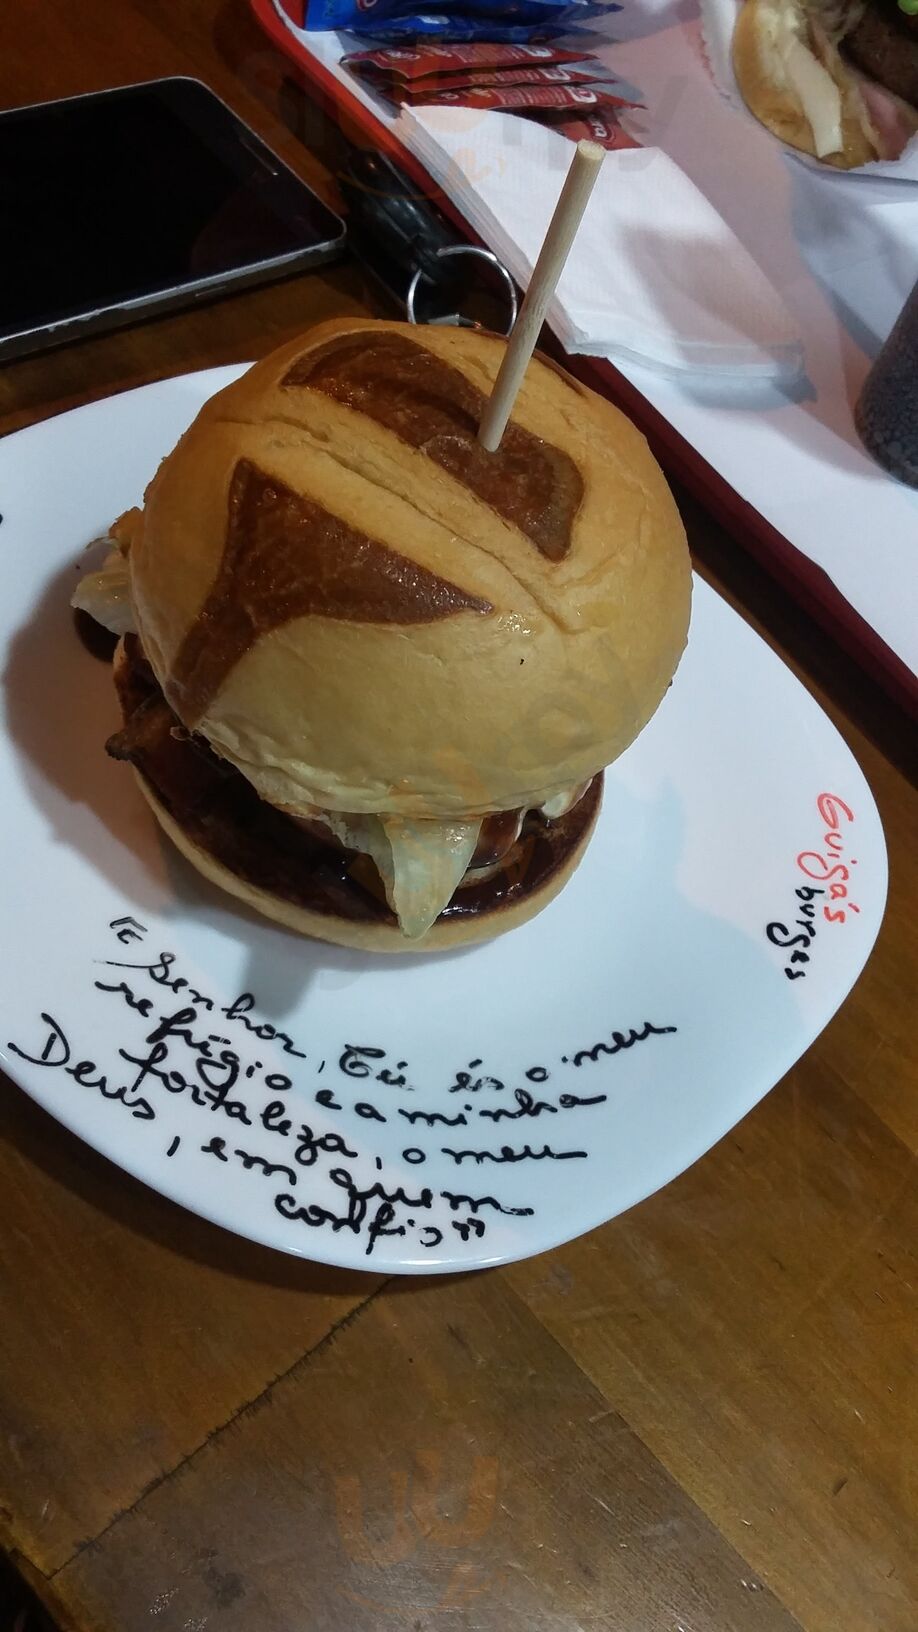 Guiga's
burges
"Senhor, Tú és o meu
refúgio e a minha
fortaleza, o meu
Deus, em quem
confio"